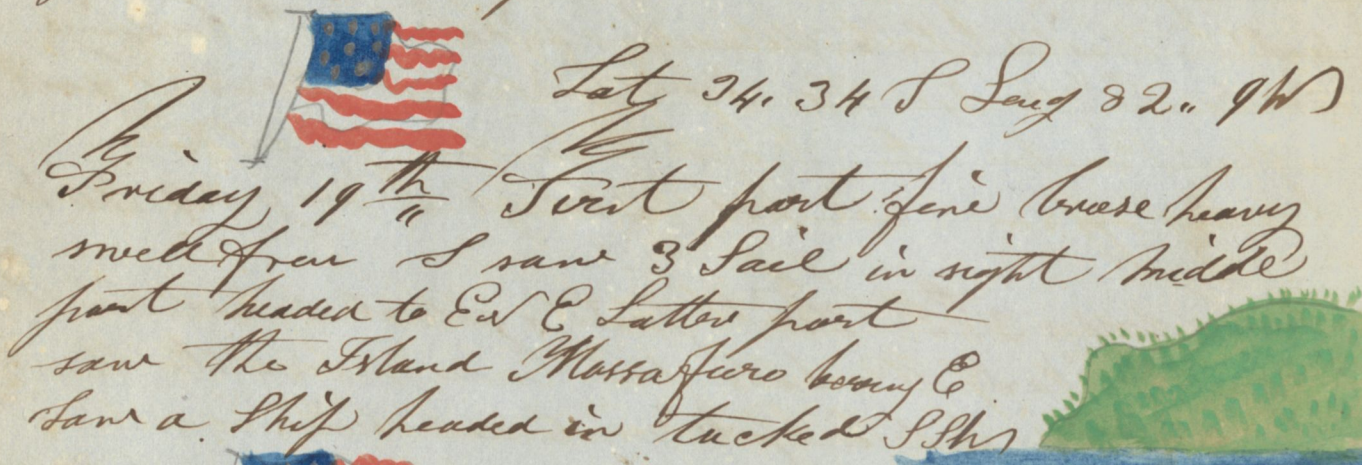 Lat 34. 34 S Long 82.. 9 W
Friday 19th First part fine breese heavy
swell from S saw 3 Sail in sight middle
part headed to E N E Latter part
saw the Island Massafuro bearing E
Saw a Ship headed in tacked SSW